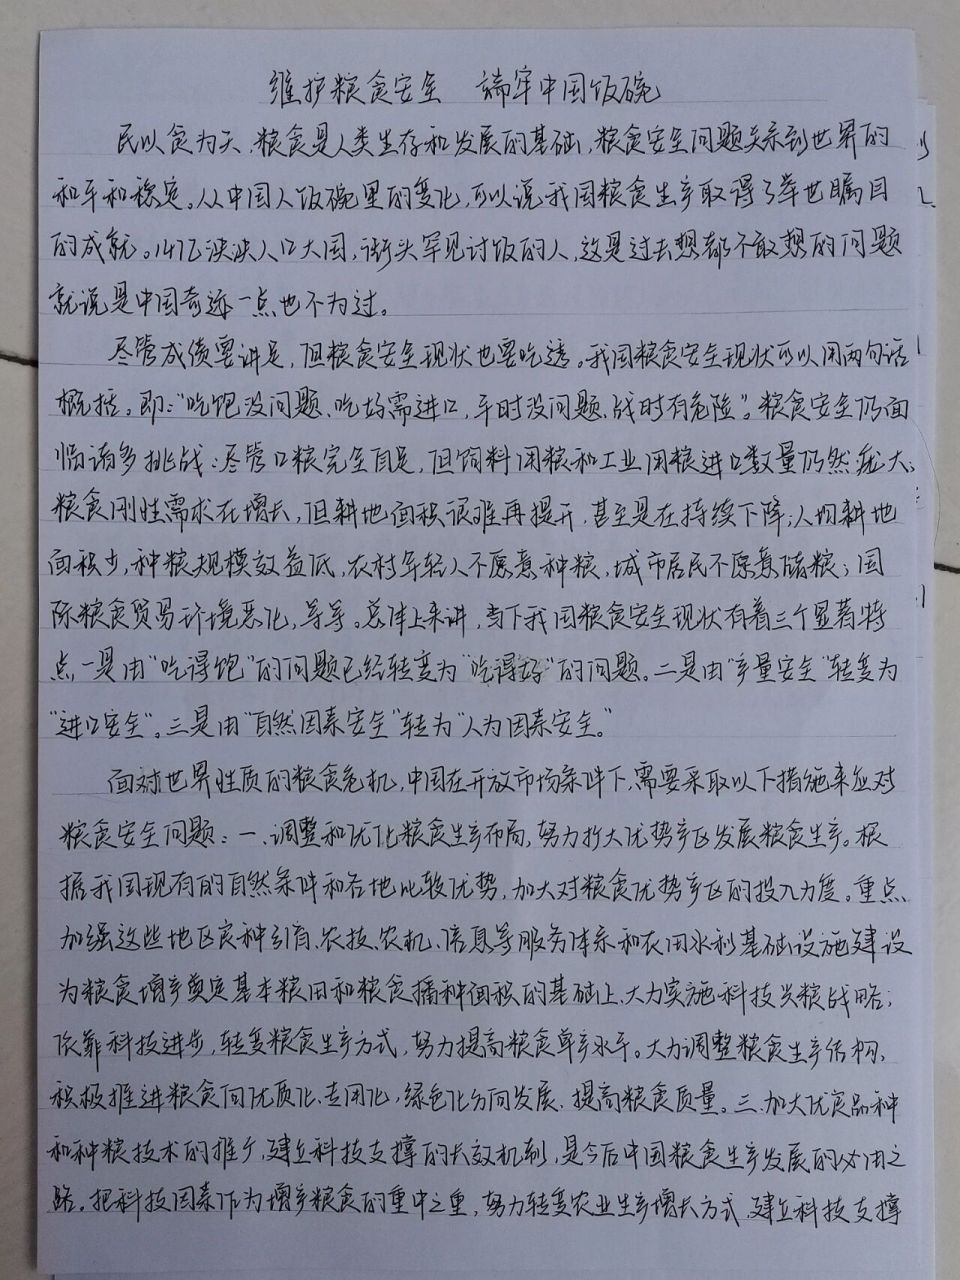 维护粮食安全 端牢中国饭碗
民以食为天，粮食是人类生存和发展的基础，粮食安全问题关系到世界的
和平和稳定。从中国人饭碗里的变化，可以说我国粮食生产取得了举世瞩目
的成就。14亿泱泱人口大国，街头罕见讨饭的人，这是过去想都不敢想的问题
就说是中国奇迹一点也不为过。
尽管成绩要讲足，但粮食安全现状也要吃透。我国粮食安全现状可以用两句话
概括。即："吃饱没问题、吃好需进口，平时没问题、战时有危险"。粮食安全仍面
临诸多挑战：尽管口粮完全自足，但饲料用粮和工业用粮进口数量仍然庞大；
粮食刚性需求在增长，但耕地面积很难再提升，甚至是在持续下降；人均耕地
面积少，种粮规模效益低，农村年轻人不愿意种粮，城市居民不愿意储粮；国
际粮食贸易环境恶化，等等。总体上来讲，当下我国粮食安全现状有着三个显著特
点一是由"吃得饱"的问题已经转变为"吃得好"的问题。二是由"产量安全"转变为
"进口安全"。三是由"自然因素安全"转为"人为因素安全。"
面对世界性质的粮食危机，中国在开放市场条件下，需要采取以下措施来应对
粮食安全问题：一、调整和优化粮食生产布局，努力扩大优势产区发展粮食生产。根
据我国现有的自然条件和各地比较优势，加大对粮食优势产区的投入力度。重点
加强这些地区良种引育、农技、农机、信息等服务体系和农田水利基础设施建设
为粮食增产奠定基本粮田和粮食播种面积的基础上、大力实施科技兴粮战略；
依靠科技进步，转变粮食生产方式，努力提高粮食单产水平。大力调整粮食生产结构，
积极推进粮食向优质化、专用化，绿色化方向发展、提高粮食质量。三、加大优良品种
和种粮技术的推广，建立科技支撑的长效机制，是今后中国粮食生产发展的必由之
路。把科技因素作为增产粮食的重中之重，努力转变农业生产增长方式，建立科技支撑